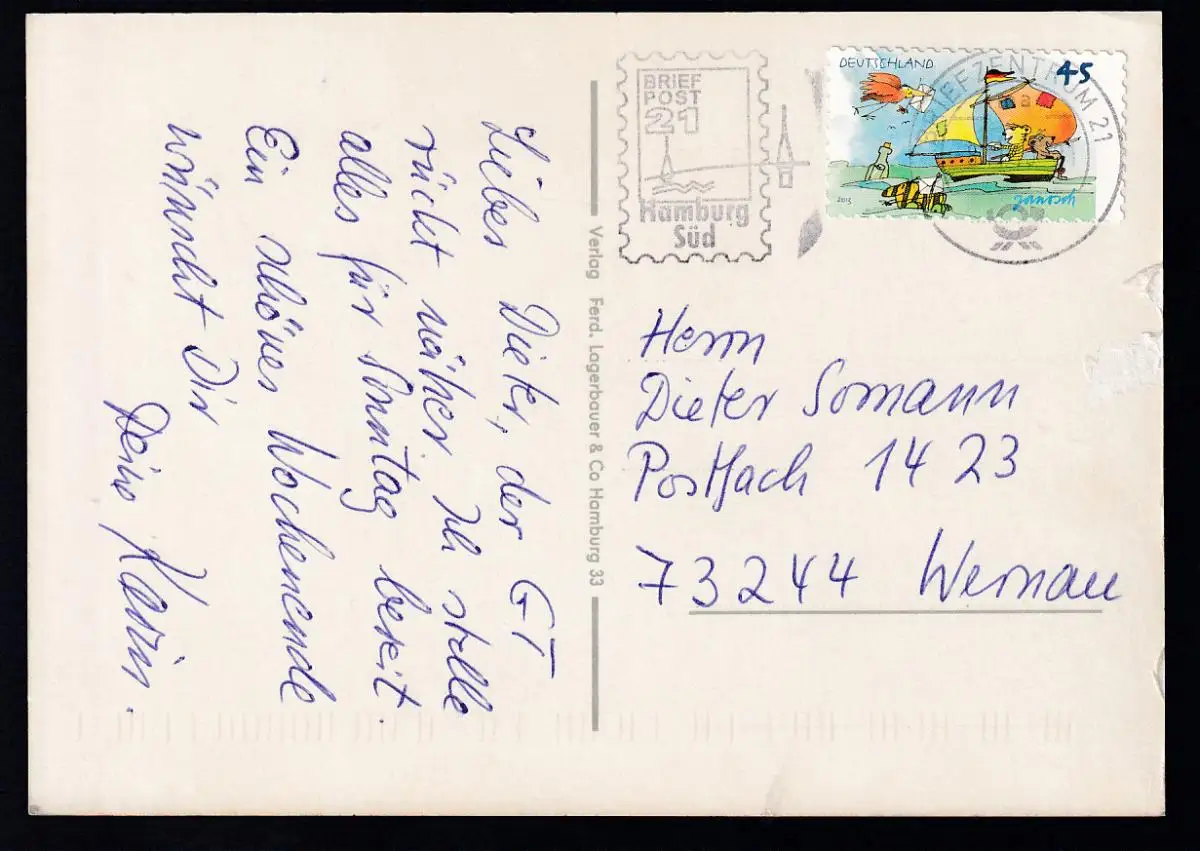 Liebes Dieter, der GT
rückt näher. Ich stelle
alles für Sonntag bereit.
Ein schönes Wochenende
wünscht Dir
Deine Karin.
Verlag Ferd. Lagerbauer & Co Hamburg 33
BRIEF
POST
21
Hamburg
Süd
DEUTSCHLAND
45
2013
janosch
BRIEFZENTRUM 21
a
Herrn
Dieter Somann
Postfach 14 23
73244 Wernau